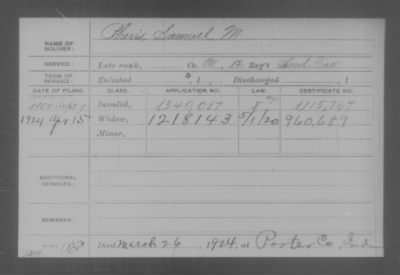 Samuel M.
NAME OF
SOLDIER:
SERVICE: Late rank, Co. M, 12 Reg't Ind. Cav.
TERM OF
SERVICE: Enlisted , 1 , Discharged , 1
DATE OF FILING. CLASS. APPLICATION NO. LAW. CERTIFICATE NO.
Invalid, 1340,087 1115,767
1924 Apr 15 Widow, 1218143 5/1/20 960,689
Minor,
ADDITIONAL
SERVICES:
REMARKS:
Died March 26, 1924, at Porter Co, Ind